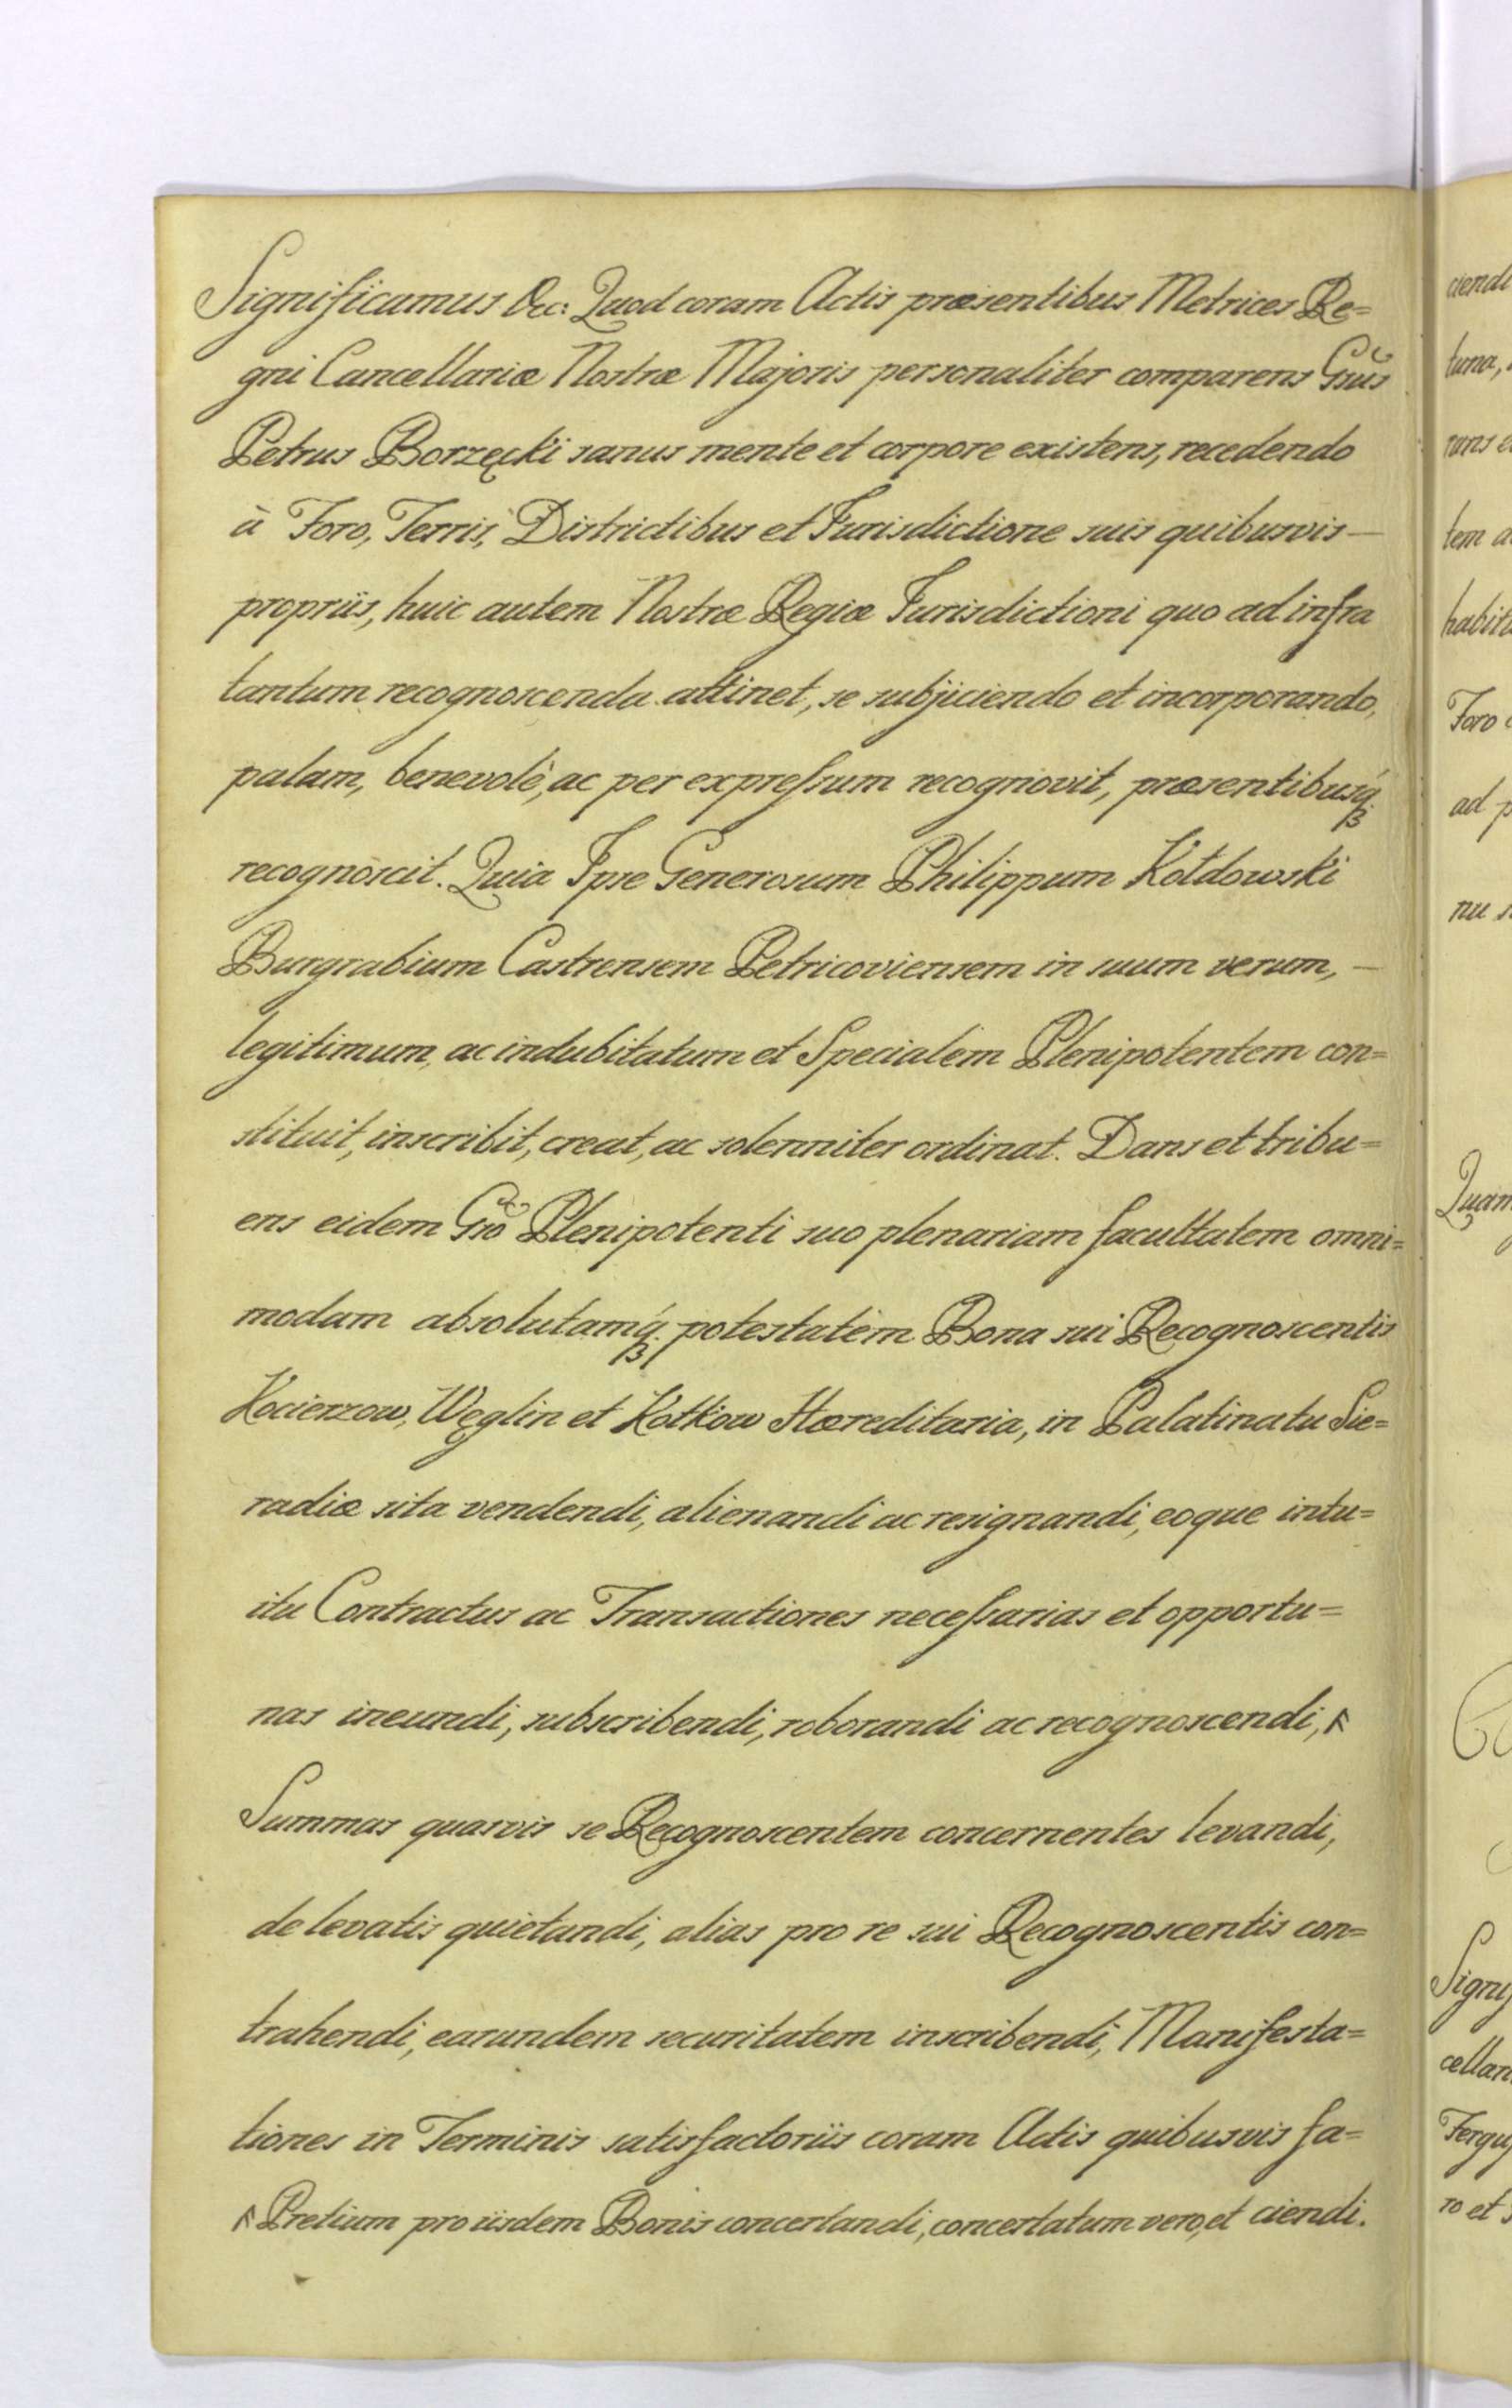 Significamus &c: Quod coram Actis præsentibus Metrices Re=
gni Cancellariæ Nostræ Majoris personaliter comparens Gnũs
Petrus Borzęcki sanus mente et corpore existens, recedendo
à Foro, Terris, Districtibus et Jurisdictione suis quibusvis —
propriis, huic autem Nostræ Regiæ Jurisdictioni quo ad infra
tantum recognoscenda attinet, se subjiciendo et incorporando,
palam, benevolè, ac per expressum recognovit, præsentibusq́ꝫ
recognoscit. Quia Ipse Generosum Philippum Kołdowski
Burgrabium Castrensem Petricoviensem in suum verum, —
legitimum, ac indubitatum et Specialem Plenipotentem con=
stituit, inscribit, creat, ac solenniter ordinat. Dans et tribu=
ens eidem Gnõ Plenipotenti suo plenariam facultatem omni=
modam absolutamq́ꝫ potestatem Bona sui Recognoscentis
Kocierzow, Węglin et Kotkow Hæreditaria, in Palatinatu Sie=
radiæ sita vendendi, alienandi ac resignandi, eoque intu=
itu Contractus ac Transactiones necessarias et opportu=
nas ineundi, subscribendi, roborandi ac recognoscendi,
Summas quasvis se Recognoscentem concernentes levandi,
de levatis quietandi, alias pro re sui Recognoscentis con=
trahendi, earundem securitatem inscribendi, Manifesta=
tiones in Terminis satisfactoriis coram Actis quibusvis fa=
Pretium pro iisdem Bonis concertandi, concertatum vero, et ciendi.
ciendi
tem a
Foro
ad p
Quam
Signif
cellari
ro et